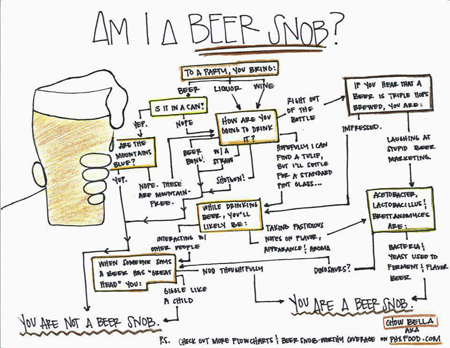 AM I A BEER SNOB?
TO A PARTY, YOU BRING:
BEER
LIQUOR
WINE
IS IT IN A CAN?
YEP.
NOPE
HOW ARE YOU
GOING TO DRINK
IT?
RIGHT OUT
OF THE
BOTTLE
IF YOU HEAR THAT A
BEER IS TRIPLE HOPS
BREWED, YOU ARE:
ARE THE
MOUNTAINS
BLUE?
BEER
BONG!
W/A
STRAW
SHOTGUN!
HOPEFULLY I CAN
FIND A TULIP, BUT
I'LL SETTLE FOR
A STANDARD
PINT GLASS...
IMPRESSED.
LAUGHING AT
STUPID BEER
MARKETING.
YUP.
NOPE. THESE
ARE MOUNTAIN-
FREE.
WHILE DRINKING
BEER, YOU'LL
LIKELY BE:
ACETOBACTER,
LACTOBACILLUS &
BRETTANOMYCES
ARE:
INTERACTING W/
OTHER PEOPLE
TAKING FASTIDIOUS
NOTES ON FLAVOR,
APPEARANCE & AROMA
WHEN SOMEONE SAYS
A BEER HAS "GREAT
HEAD" YOU:
NOD THOUGHTFULLY
DINOSAURS?
BACTERIA &
YEAST USED TO
FERMENT & FLAVOR
BEER
GIGGLE LIKE
A CHILD
YOU ARE NOT A BEER SNOB.
YOU ARE A BEER SNOB.
CHOW BELLA
AKA
P.S. CHECK OUT MORE FLOW CHARTS & BEER SNOB-WORTHY COVERAGE ON PHXFOOD.COM